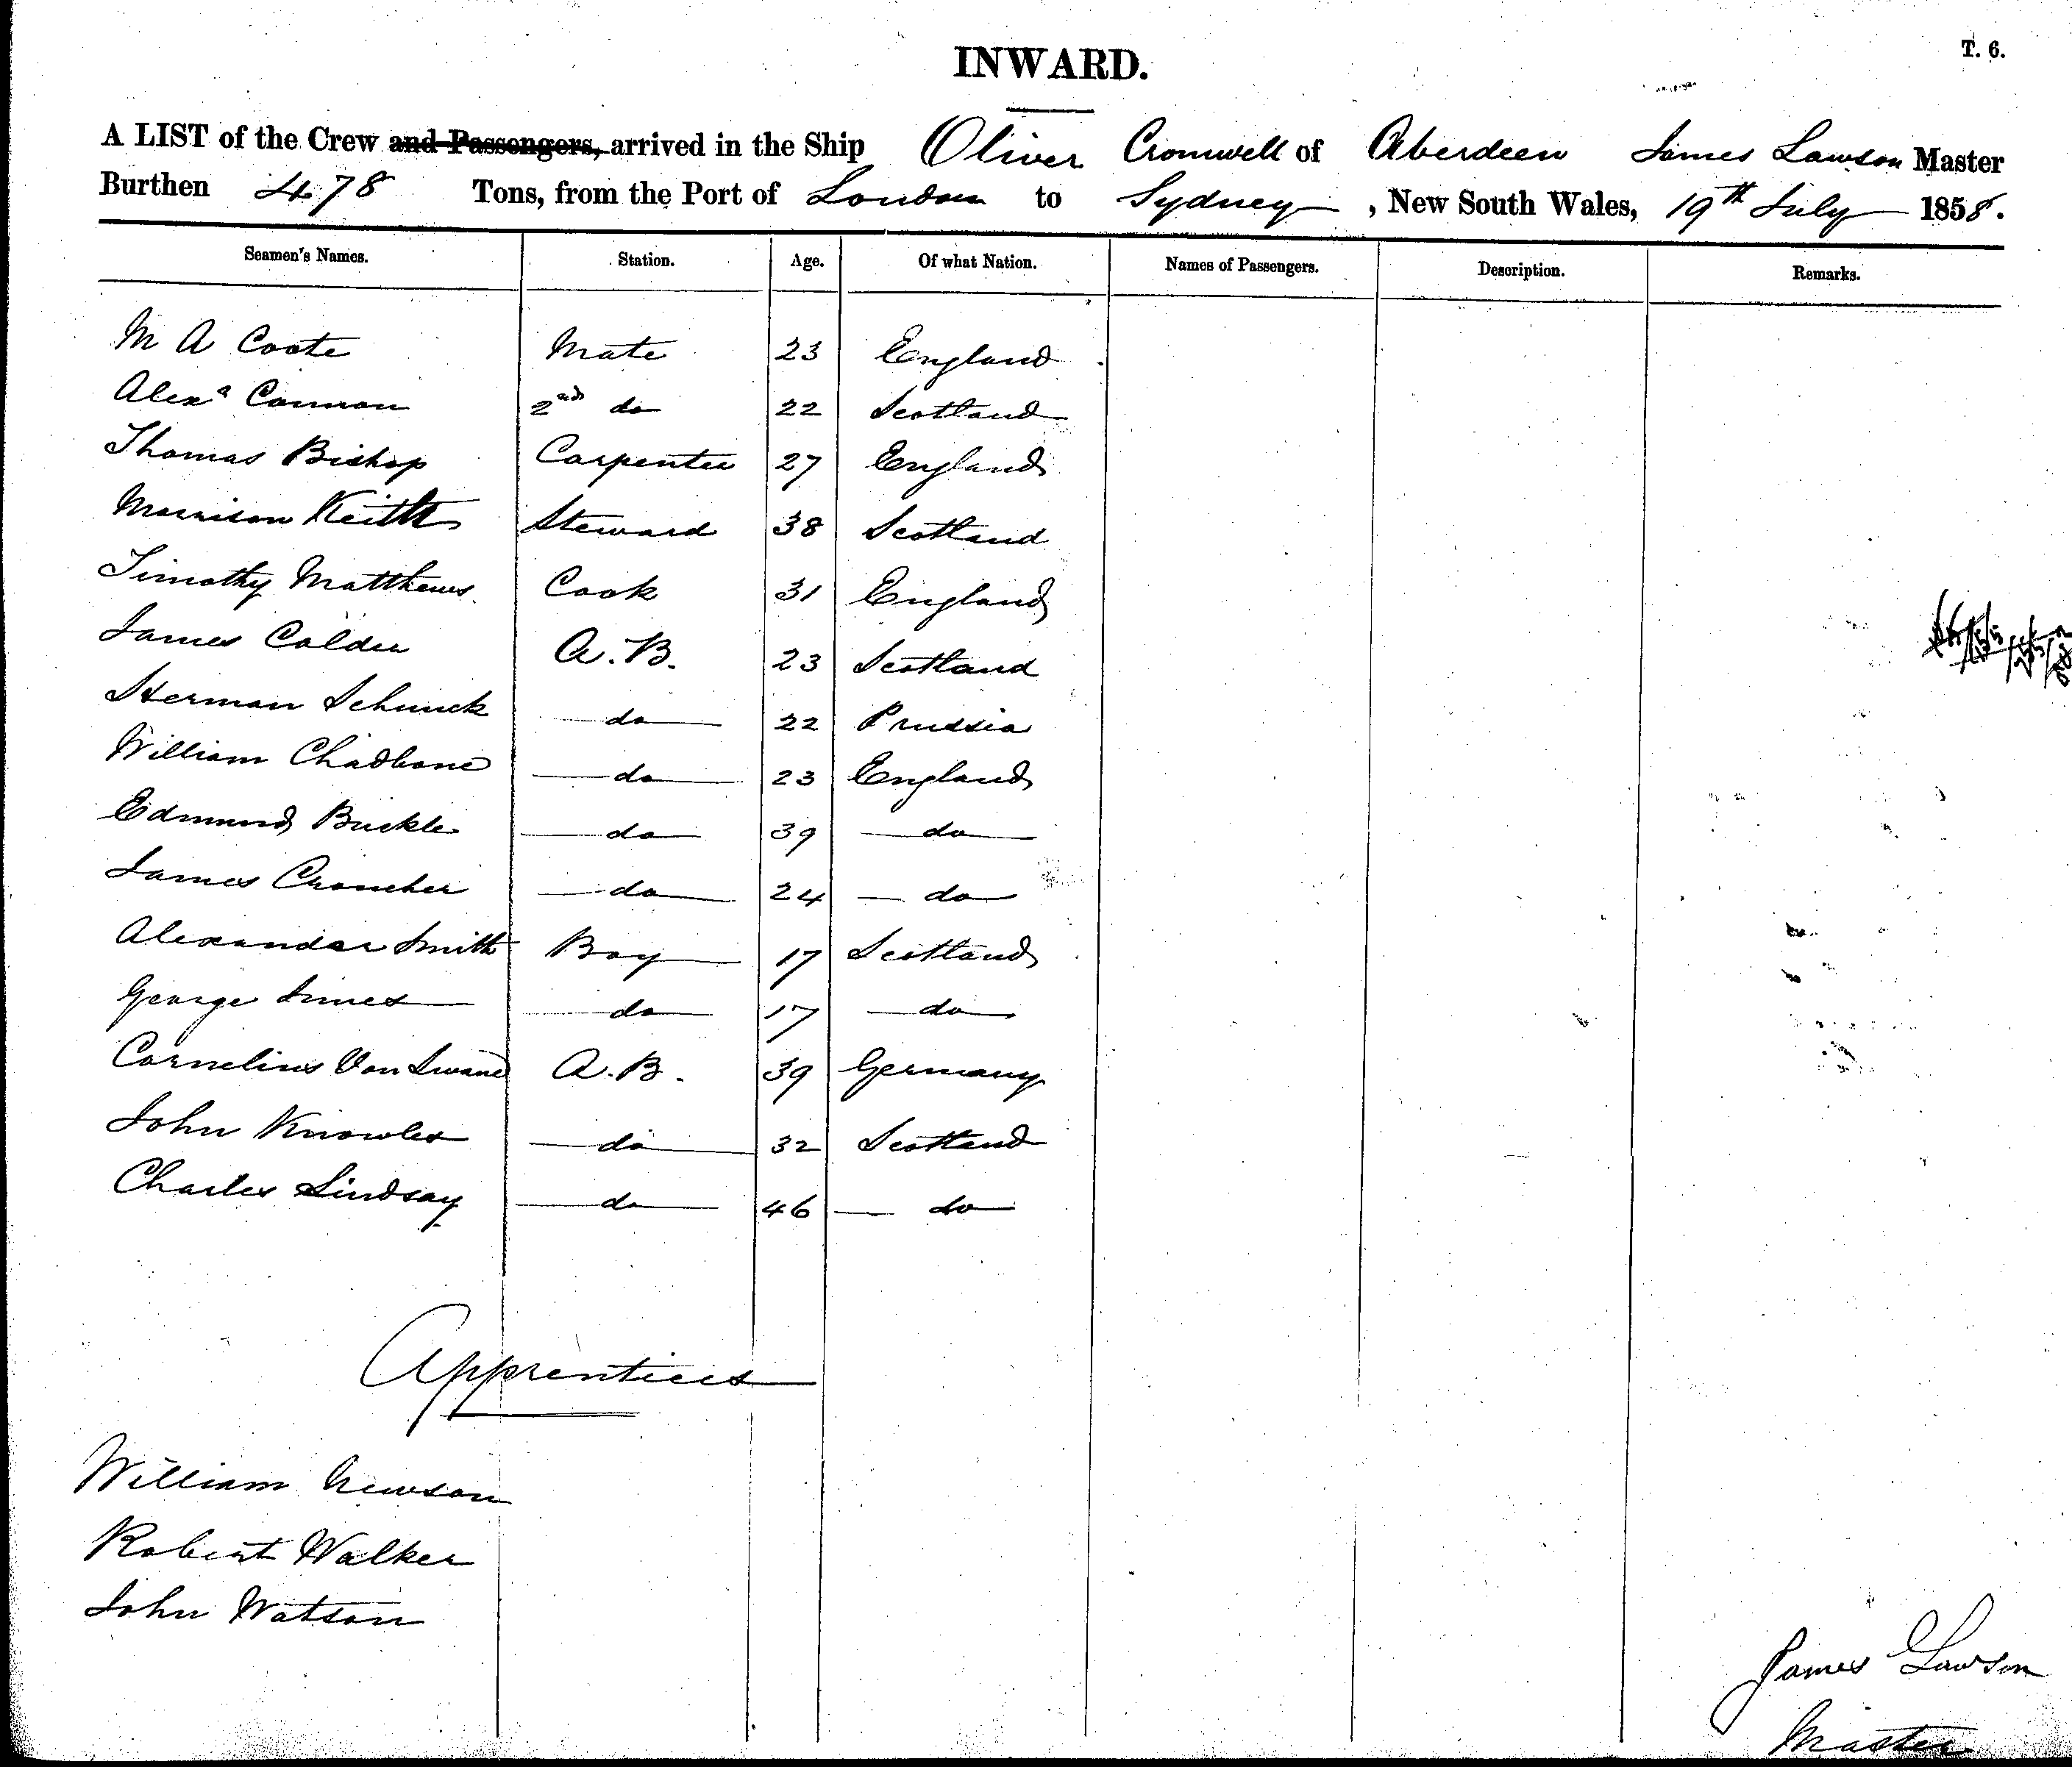 INWARD.
T. 6.
A LIST of the Crew and Passengers, arrived in the Ship Oliver Cromwell of Aberdeen James Lawson Master
Burthen 478 Tons, from the Port of London to Sydney, New South Wales, 19th July 1858.
Seamen's Names. Station. Age. Of what Nation. Names of Passengers. Description. Remarks.
M A Coote Mate 23 England
Alexr Cannon 2nd do 22 Scotland
Thomas Bishop Carpenter 27 England
Morrison Keith Steward 38 Scotland
Timothy Matthews Cook 31 England
James Calder A.B. 23 Scotland
Herman Schunck do 22 Prussia
William Chadbone do 23 England
Edmund Buckle do 39 do
James Croucher do 24 do
Alexander Smith Boy 17 Scotland
George Innes do 17 do
Cornelius Van A.B. 39 Germany
John Knowles do 32 Scotland
Charles Lindsay do 46 do
Apprentices
William Newson
Robert Walker
John Watson
James Lawson
Master